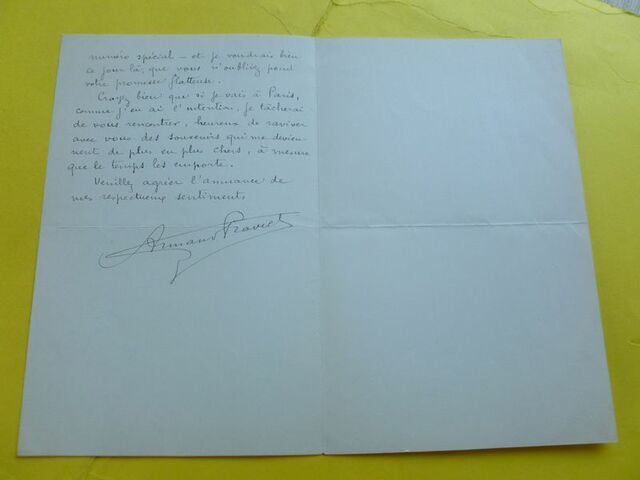 numéro spécial — et je voudrais bien
ce jour là, que vous n'oubliez point
votre promesse flatteuse.
Croyez bien que si je vais à Paris,
comme j'en ai l'intention, je tâcherai
de vous rencontrer, heureux de raviver
avec vous des souvenirs qui me devien-
nent de plus en plus chers, à mesure
que le temps les emporte.
Veuillez agréer l'assurance de
mes respectueux sentiments
Armand Praviel